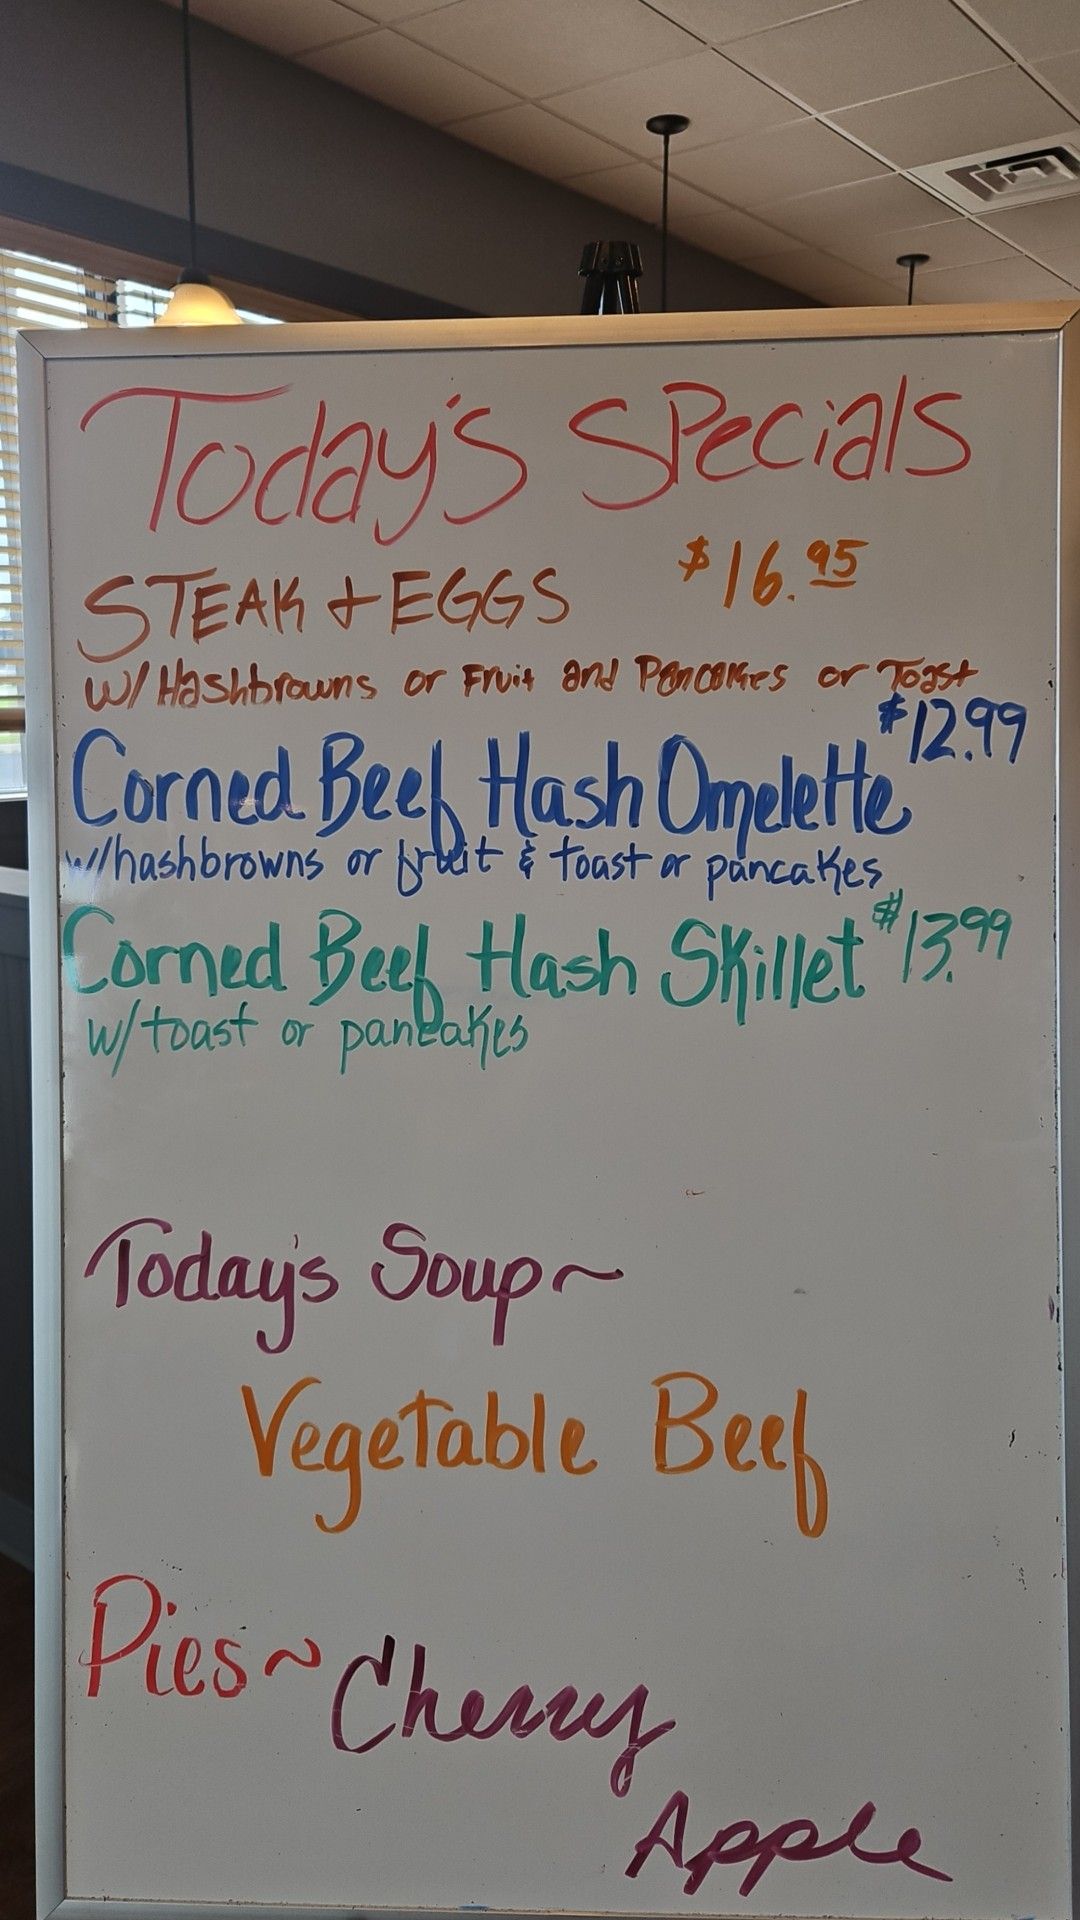 Today's Specials
STEAK & EGGS $16.95
w/ Hashbrowns or Fruit and Pancakes or Toast
$12.99
Corned Beef Hash Omelette
w/hashbrowns or fruit & toast or pancakes
Corned Beef Hash Skillet $13.99
w/toast or pancakes
Today's Soup~
Vegetable Beef
Pies~ Cherry
Apple